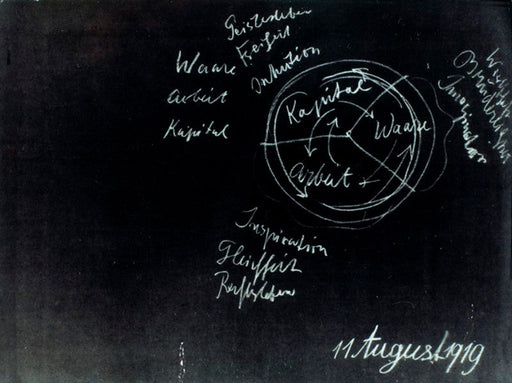 Geistesleben
Freiheit
Intuition
Waare
Arbeit
Kapital
Kapital
Waare
Arbeit
Imagination
Inspiration
Gleichheit
Rechtsleben
11 August 1919